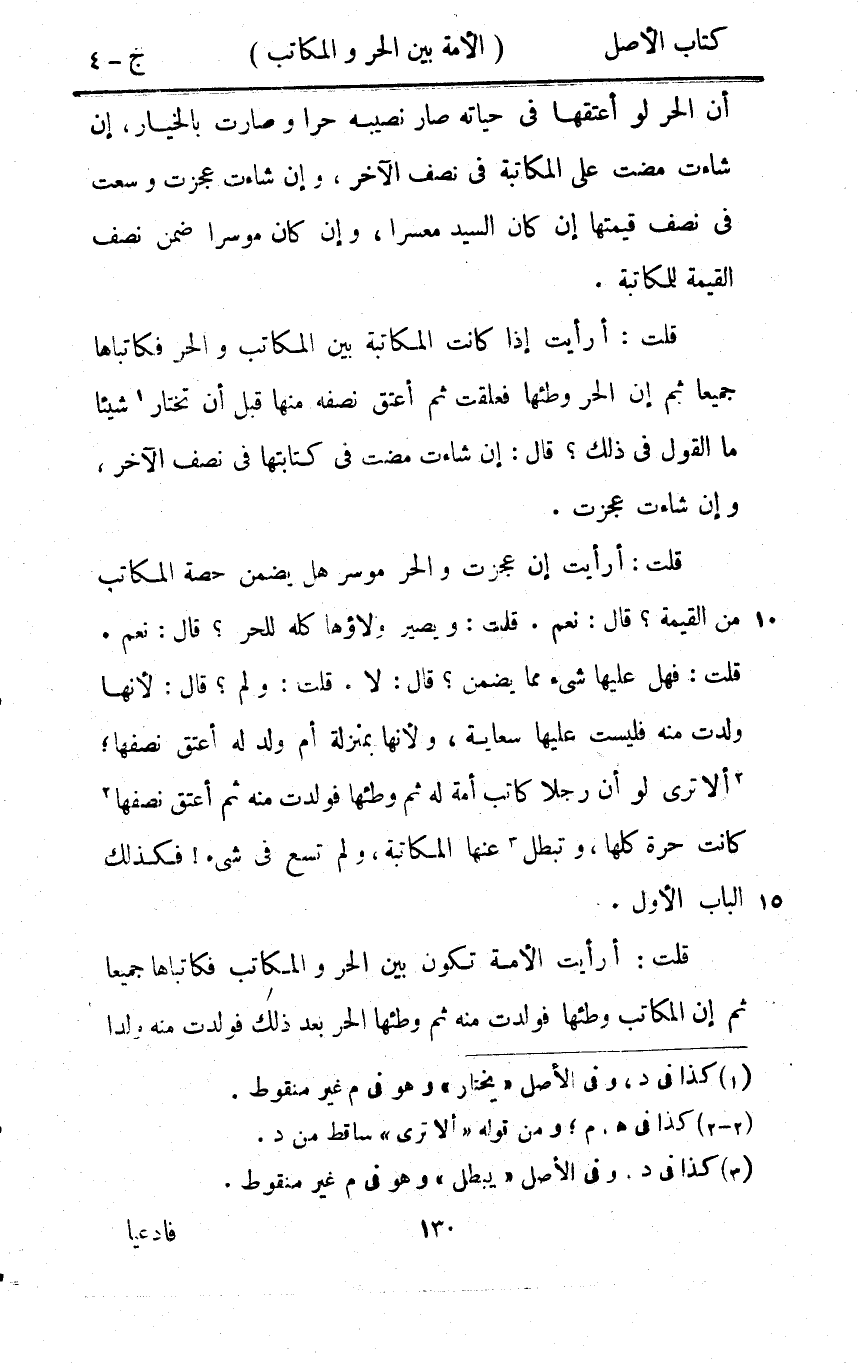 كتاب الأصل ( الأمة بين الحر و المكاتب ) ج - ٤
أن الحر لو أعتقهـا فى حياته صار نصيبـه حرا و صارت بالخيـار، إن
شاءت مضت على المكاتبة فى نصف الآخر ، و إن شاءت عجزت و سعت
فى نصف قيمتها إن كان السيد معسرا ، و إن كان موسرا ضمن نصف
القيمة للمكاتبة .
قلت : أ رأيت إذا كانت المـكاتبة بين المـكاتب و الحر فكاتباها
جميعا ثم إن الحر وطئها فعلقت ثم أعتق نصفه منها قبل أن تختار ١ شيئا
ما القول فى ذلك ؟ قال : إن شاءت مضت فى كـتابتها فى نصف الآخر ،
و إن شاءت عجزت .
قلت : أ رأيت إن عجزت و الحر موسر هل يضمن حصة المـكاتب
١٠ من القيمة ؟ قال : نعم . قلت : و يصير ولاؤها كله للحر ؟ قال : نعم .
قلت : فهل عليها شىء مما يضمن ؟ قال : لا . قلت : و لم ؟ قال : لأنهـا
ولدت منه فليست عليها سعايـة ، و لأنها بمنزلة أم ولد له أعتق نصفها ؛
٢ ألا ترى لو أن رجلا كاتب أمة له ثم وطئها فولدت منه ثم أعتق نصفها ٢
كانت حرة كلها ، و تبطل ٣ عنها المـكاتبة ، و لم تسع فى شىء ! فـكـذلك
١٥ الباب الأول .
قلت : أ رأيت الأمـة تـكون بين الحر و المـكاتب فكاتباها جميعا
ثم إن المكاتب وطئها فولدت منه ثم وطئها الحر بعد ذلك فولدت منه ولدا
(١) كذا فى د ، و فى الأصل « يختار » و هو فى م غير منقوط .
(٢-٢) كذا فى ه ، م ؛ و من قوله « ألا ترى » ساقط من د .
(٣) كذا فى د . و فى الأصل « يبطل » و هو فى م غير منقوط .
١٣٠ فادعيا